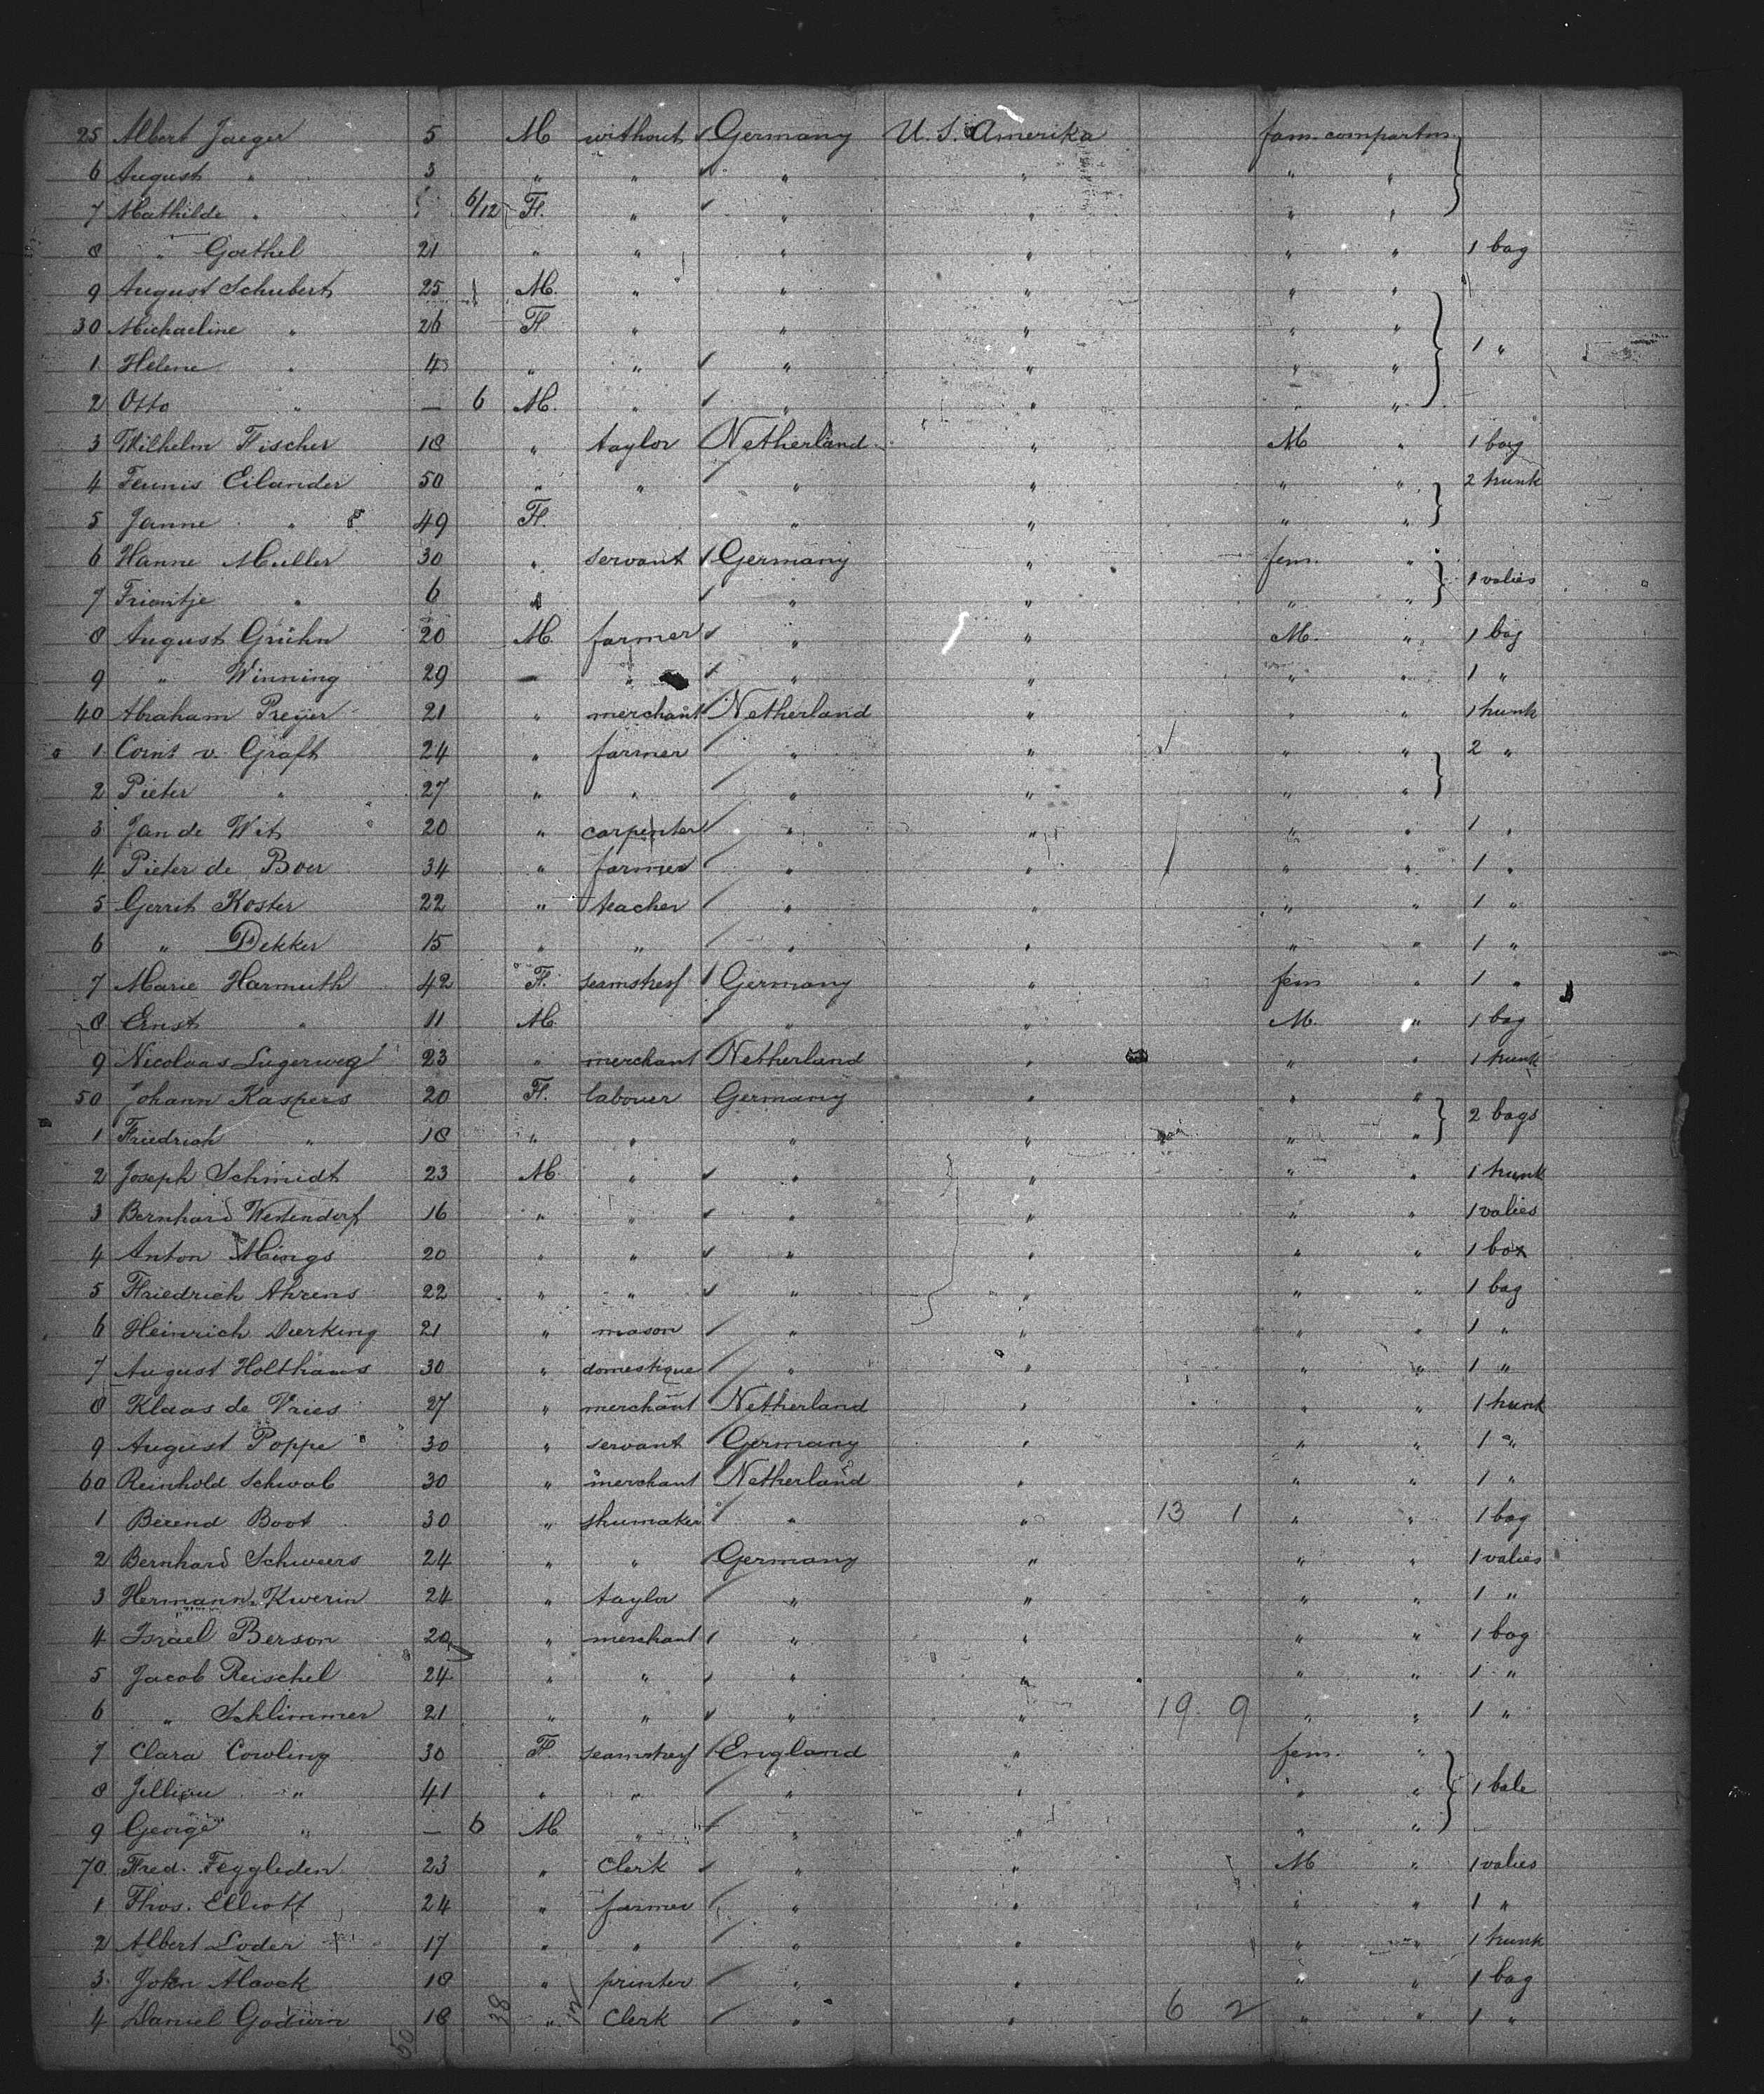 25 Albert Jaeger 5 M without Germany U. S. Amerika fam. compartm.
6 August " 3 " " " " " "
7 Mathilde " 6/12 F. " " " " "
8 " Goethel 21 " " " " " " 1 bag
9 August Schubert 25 M. " " " " "
30 Michaeline " 26 F " " " " "
1 Helene " 4 " " " " " " 1 "
2 Otto " — 6 M. " " " " "
3 Wilhelm Fischer 18 " taylor Netherland " M " 1 bag
4 Teunis Eilander 50 " " " " " " 2 trunk
5 Janne " 49 F. " " " "
6 Hanne Muller 30 " servant Germany " fem. "
7 Trientje " 6 " " " " " 1 valies
8 August Grühn 20 M. farmer " " M. " 1 bag
9 " Winning 29 " " " " " 1 "
40 Abraham Preijer 21 " merchant Netherland " " " 1 trunk
1 Corns v. Graft 24 " farmer " " " " 2 "
2 Pieter " 27 " " " " " "
3 Jan de Wit 20 " carpenter " " " " 1 "
4 Pieter de Boer 34 " farmer " " " " 1 "
5 Gerrit Koster 22 " teacher " " " " 1 "
6 " Dekker 15 " " " " " " 1 "
7 Marie Harmuth 42 F. seamstress Germany " fem " 1 "
8 Ernst " 11 M. " " M. " 1 bag
9 Nicolaas Lugerweg 23 " merchant Netherland " " " 1 trunk
50 Johann Kaspers 20 F. labouer Germany " " "
1 Friedrich " 18 " " " " " " 2 bags
2 Joseph Schmidt 23 M " " " " " 1 trunk
3 Bernhard Westendorf 16 " " " " " " 1 valies
4 Anton Mings 20 " " " " " " 1 box
5 Friedrich Ahrens 22 " " " " " " 1 bag
6 Heinrich Dierking 21 " mason " " " " 1 "
7 August Holthaus 30 " domestique " " " " 1 "
8 Klaas de Vries 27 " merchant Netherland " " " 1 trunk
9 August Poppe 30 " servant Germany " " " 1 "
60 Reinhold Schwab 30 " merchant Netherland " " " 1 "
1 Berend Boot 30 " shumaker " " 13 1 " " 1 bag
2 Bernhard Schweers 24 " " Germany " " " 1 valies
3 Hermann Kwerin 24 " taylor " " " " 1 "
4 Israel Berson 20 " merchant " " " " 1 bag
5 Jacob Reischel 24 " " " " " " 1 "
6 " Schlimmer 21 " " " " 19 9 " " 1 "
7 Clara Cowling 30 F. seamstress England " fem. "
8 " 41 " " " " " " 1 bale
9 George " — 6 M " " " " "
70 Fred. Feggleden 23 " Clerk " " M " 1 valies
1 Thos. Elliott 24 " farmer " " " " 1 "
2 Albert Loder 17 " " " " " " 1 trunk
3 John 18 " printer " " " " 1 bag
4 Daniel Godwin 18 " Clerk " " 6 2 " " 1 "
50 38 12